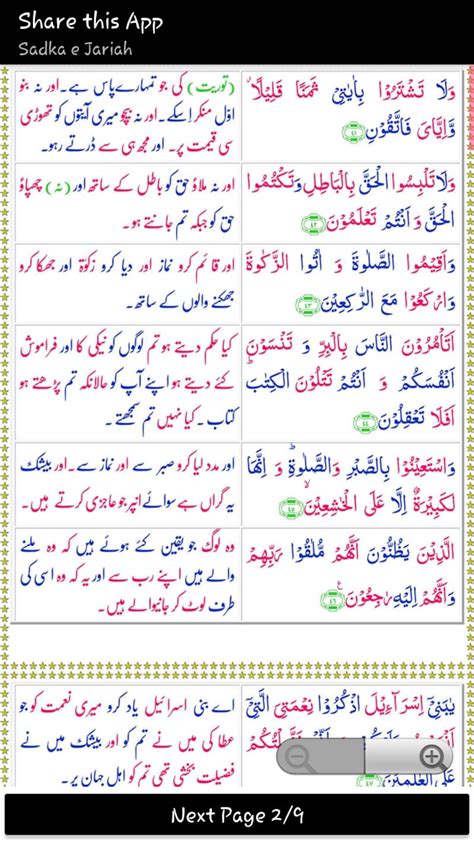 Share this App
Sadka e Jariah
وَلَا تَشْتَرُوْا بِاٰيٰتِىْ ثَمَنًا قَلِيْلًا ۙ
وَّاِيَّاىَ فَاتَّقُوْنِ ۴۱
(توریت) کی جو تمہارے پاس ہے۔ اور نہ بنو
اوّل منکر اسکے۔ اور نہ بیچو میری آیتوں کو تھوڑی
سی قیمت پر۔ اور مجھ ہی سے ڈرتے رہو۔
وَلَا تَلْبِسُوا الْحَقَّ بِالْبَاطِلِ وَتَكْتُمُوا
الْحَقَّ وَ اَنْتُمْ تَعْلَمُوْنَ ۴۲
اور نہ ملاؤ حق کو باطل کے ساتھ اور (نہ) چھپاؤ
حق کو جبکہ تم جانتے ہو۔
وَاَقِيْمُوا الصَّلٰوةَ وَ اٰتُوا الزَّكٰوةَ
وَارْكَعُوْا مَعَ الرّٰكِعِيْنَ ۴۳
اور قائم کرو نماز اور دیا کرو زکوٰۃ اور جھکا کرو
جھکنے والوں کے ساتھ۔
اَتَاْمُرُوْنَ النَّاسَ بِالْبِرِّ وَ تَنْسَوْنَ
اَنْفُسَكُمْ وَ اَنْتُمْ تَتْلُوْنَ الْكِتٰبَ ؕ
اَفَلَا تَعْقِلُوْنَ ۴۴
کیا حکم دیتے ہو تم لوگوں کو نیکی کا اور فراموش
کئے دیتے ہو اپنے آپ کو حالانکہ تم پڑھتے ہو
کتاب۔ کیا نہیں تم سمجھتے۔
وَاسْتَعِيْنُوْا بِالصَّبْرِ وَالصَّلٰوةِ ؕ وَ اِنَّهَا
لَكَبِيْرَةٌ اِلَّا عَلَى الْخٰشِعِيْنَ ۙ ۴۵
اور مدد لیا کرو صبر سے اور نماز سے۔ اور بیشک
یہ گراں ہے سوائے انپر جو عاجزی کرتے ہیں۔
الَّذِيْنَ يَظُنُّوْنَ اَنَّهُمْ مُّلٰقُوْا رَبِّهِمْ
وَاَنَّهُمْ اِلَيْهِ رٰجِعُوْنَ ۴۶
وہ لوگ جو یقین کئے ہوئے ہیں کہ وہ ملنے
والے ہیں اپنے رب سے اور یہ کہ وہ اسی کی
طرف لوٹ کر جانیوالے ہیں۔
يٰبَنِىْۤ اِسْرَآءِيْلَ اذْكُرُوْا نِعْمَتِىَ الَّتِىْۤ
عَلَى الْعٰلَمِيْنَ ۴۷
اے بنی اسرائیل یاد کرو میری نعمت کو جو
عطا کی میں نے تم کو اور بیشک میں نے
فضیلت بخشی تھی تم کو اہل جہان پر۔
Next Page 2/9